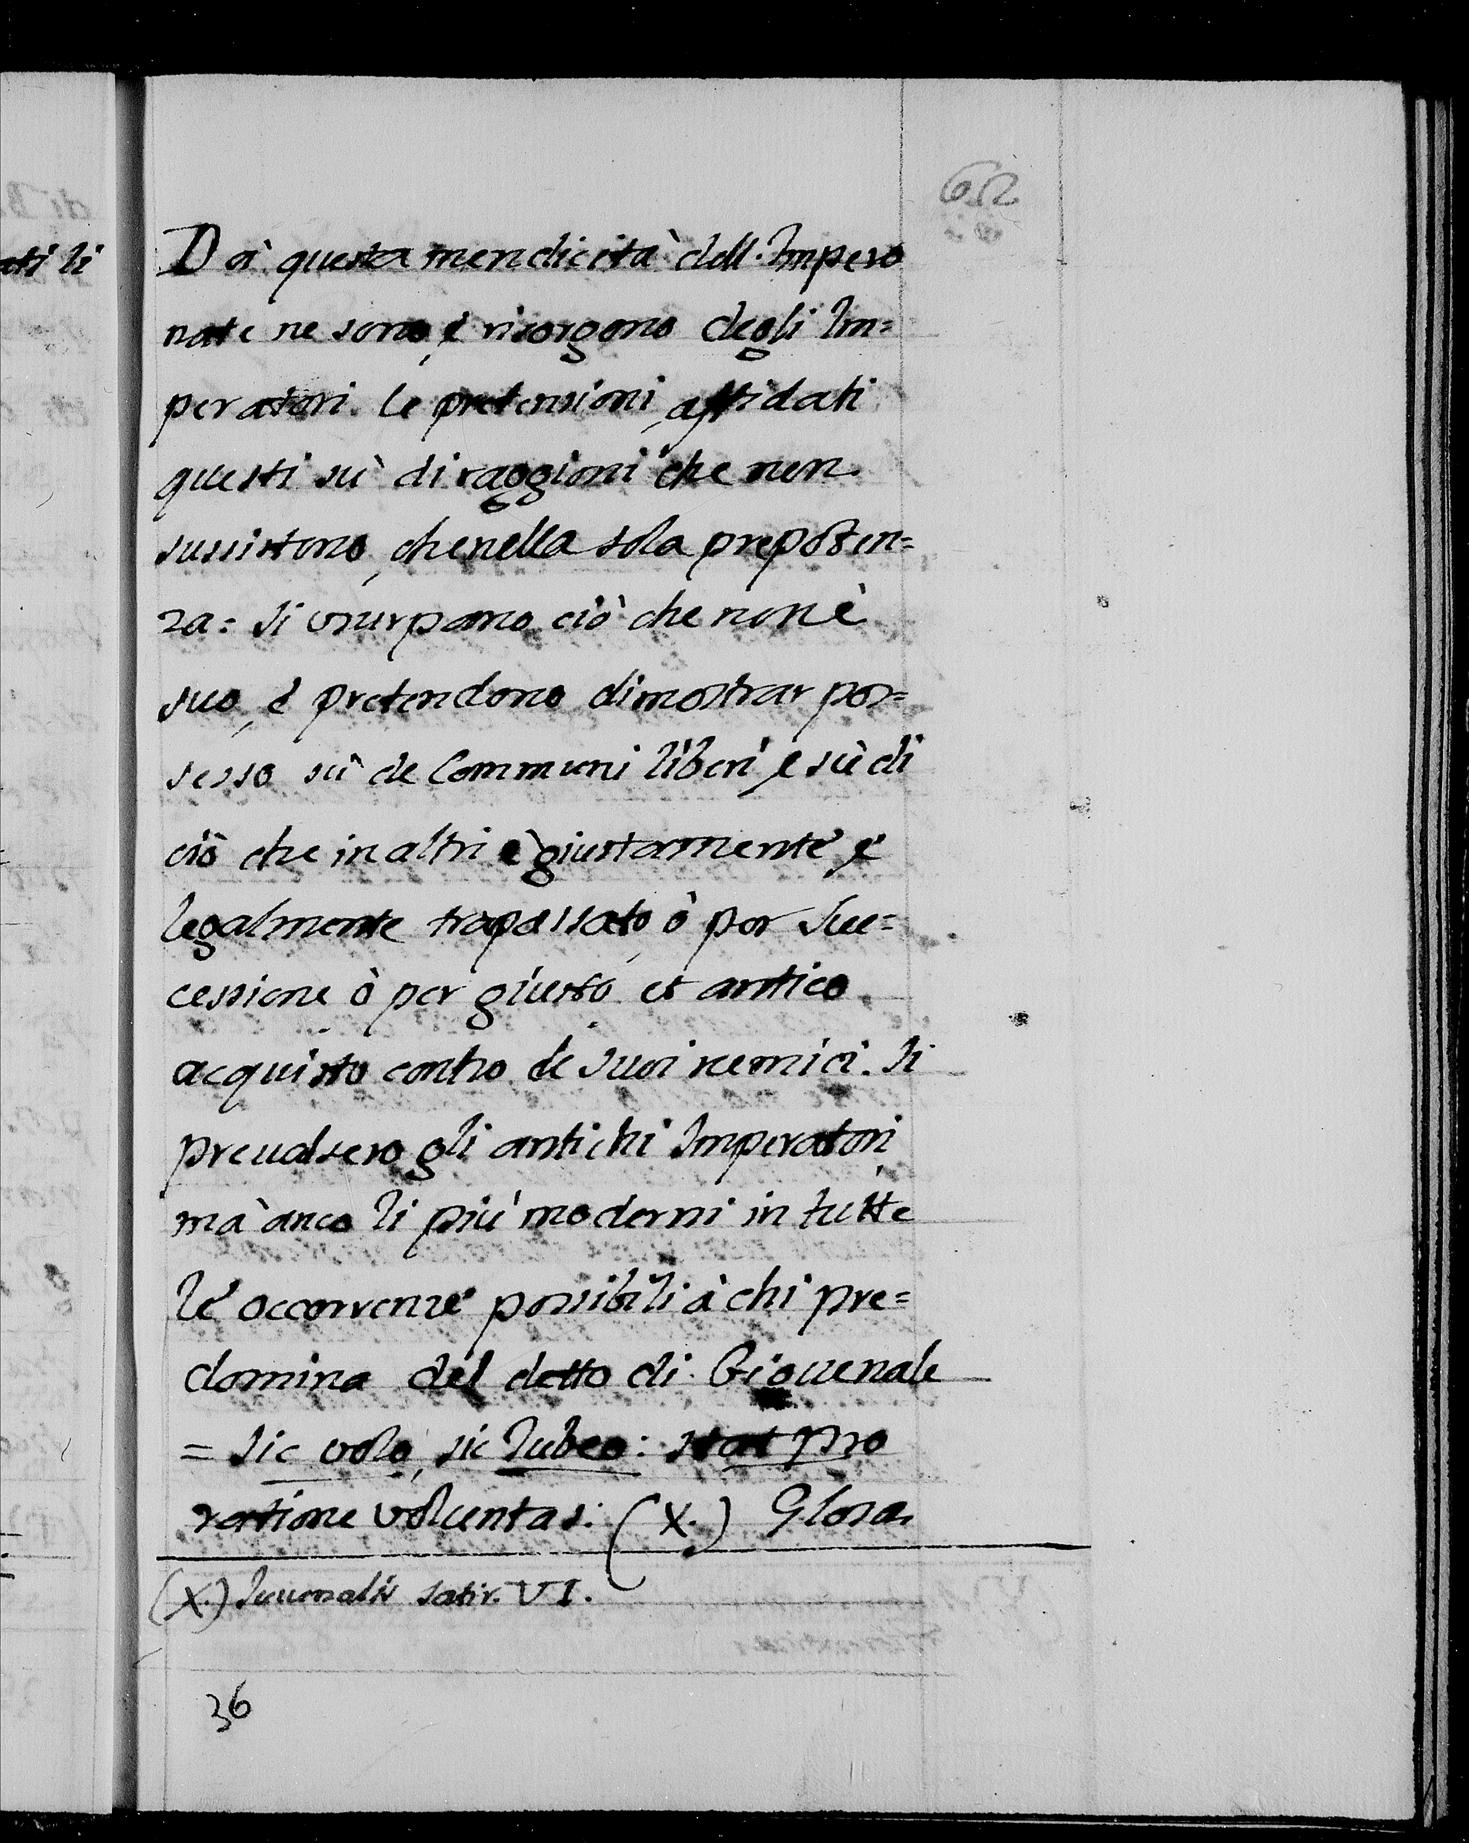 Dà questa mendicità dell. Impero
nate ne sono, è risorgono degli Im=
peratori. le pretensioni, affidati
questi sù di raggioni che non
sussistono, che nella sola prepoten=
za: si vsurpano ciò che non è
suo, è pretendono dimostrar pos=
sesso sù de Communi liberi, e sù di
ciò che in altri è giustamente, è
legalmente trapassato, ò per Suc=
cessione ò per giusto et antico
acquisto contro de suoi nemici. Si
preualsero gli antichi Imperatori,
mà anco li più moderni in tutte
le occorrenze possibili à chi pre=
domina del detto di Giouenale
= Sic volo, sic Iubeo: stat pro
ratione voluntas: (X.) Glosa
(X.) Iuuenalis satir. VI.
36